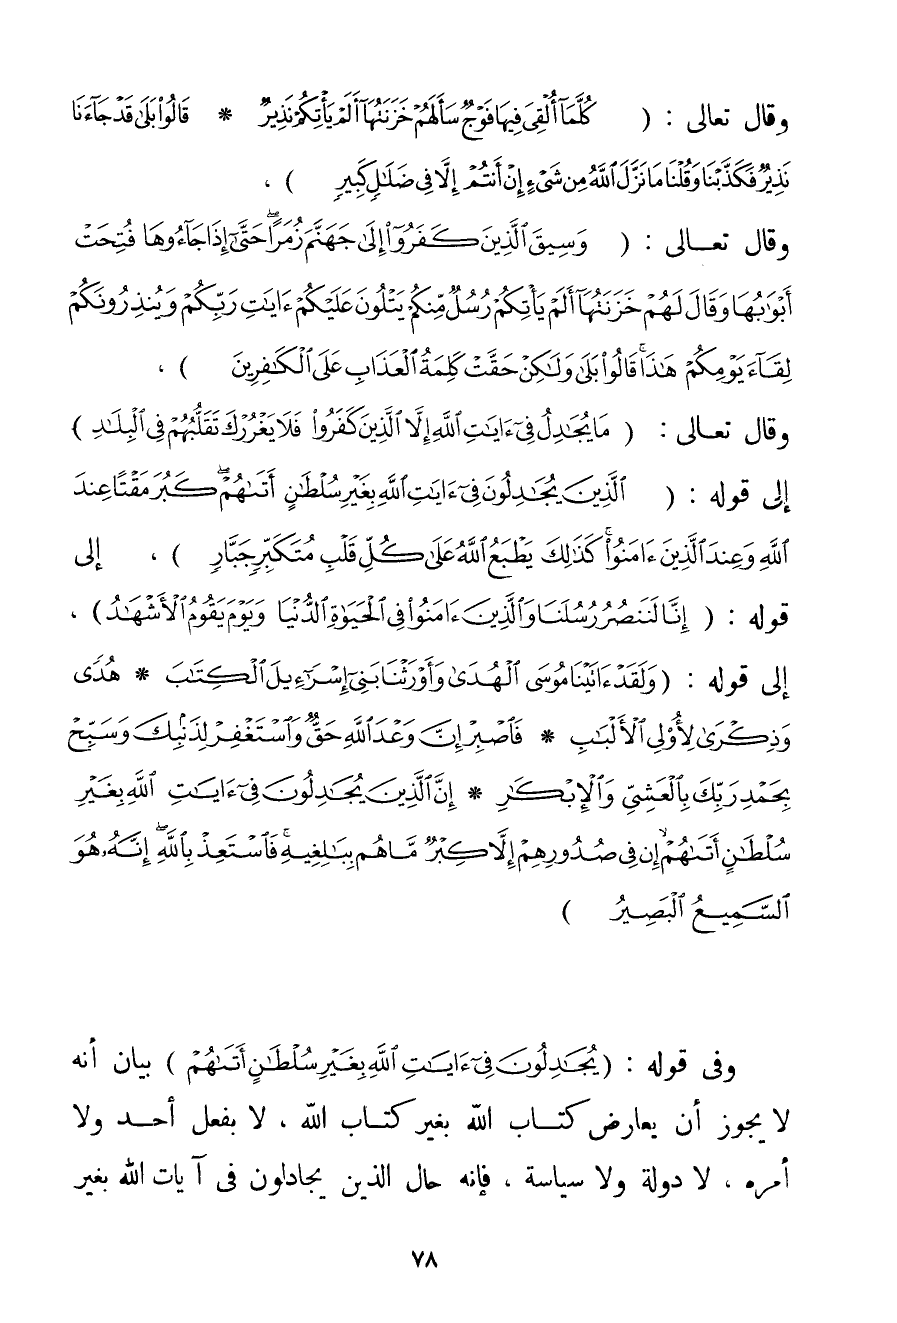 وقال تعالى : ( كُلَّمَآ أُلْقِىَ فِيهَا فَوْجٌ سَأَلَهُمْ خَزَنَتُهَآ أَلَمْ يَأْتِكُمْ نَذِيرٌ * قَالُوا۟ بَلَىٰ قَدْ جَآءَنَا
نَذِيرٌ فَكَذَّبْنَا وَقُلْنَا مَا نَزَّلَ ٱللَّهُ مِن شَىْءٍ إِنْ أَنتُمْ إِلَّا فِى ضَلَٰلٍ كَبِيرٍ ) ،
وقال تعـالى : ( وَسِيقَ ٱلَّذِينَ كَفَرُوٓا۟ إِلَىٰ جَهَنَّمَ زُمَرًا ۖ حَتَّىٰٓ إِذَا جَآءُوهَا فُتِحَتْ
أَبْوَٰبُهَا وَقَالَ لَهُمْ خَزَنَتُهَآ أَلَمْ يَأْتِكُمْ رُسُلٌ مِّنكُمْ يَتْلُونَ عَلَيْكُمْ ءَايَٰتِ رَبِّكُمْ وَيُنذِرُونَكُمْ
لِقَآءَ يَوْمِكُمْ هَٰذَا ۚ قَالُوا۟ بَلَىٰ وَلَٰكِنْ حَقَّتْ كَلِمَةُ ٱلْعَذَابِ عَلَى ٱلْكَٰفِرِينَ ) ،
وقال تعـالى : ( مَا يُجَٰدِلُ فِىٓ ءَايَٰتِ ٱللَّهِ إِلَّا ٱلَّذِينَ كَفَرُوا۟ فَلَا يَغْرُرْكَ تَقَلُّبُهُمْ فِى ٱلْبِلَٰدِ )
إلى قوله : ( ٱلَّذِينَ يُجَٰدِلُونَ فِىٓ ءَايَٰتِ ٱللَّهِ بِغَيْرِ سُلْطَٰنٍ أَتَىٰهُمْ ۖ كَبُرَ مَقْتًا عِندَ
ٱللَّهِ وَعِندَ ٱلَّذِينَ ءَامَنُوا۟ ۚ كَذَٰلِكَ يَطْبَعُ ٱللَّهُ عَلَىٰ كُلِّ قَلْبِ مُتَكَبِّرٍ جَبَّارٍ ) ، إلى
قوله : ( إِنَّا لَنَنصُرُ رُسُلَنَا وَٱلَّذِينَ ءَامَنُوا۟ فِى ٱلْحَيَوٰةِ ٱلدُّنْيَا وَيَوْمَ يَقُومُ ٱلْأَشْهَٰدُ ) ،
إلى قوله : ( وَلَقَدْ ءَاتَيْنَا مُوسَى ٱلْهُدَىٰ وَأَوْرَثْنَا بَنِىٓ إِسْرَٰٓءِيلَ ٱلْكِتَٰبَ * هُدًى
وَذِكْرَىٰ لِأُو۟لِى ٱلْأَلْبَٰبِ * فَٱصْبِرْ إِنَّ وَعْدَ ٱللَّهِ حَقٌّ وَٱسْتَغْفِرْ لِذَنۢبِكَ وَسَبِّحْ
بِحَمْدِ رَبِّكَ بِٱلْعَشِىِّ وَٱلْإِبْكَٰرِ * إِنَّ ٱلَّذِينَ يُجَٰدِلُونَ فِىٓ ءَايَٰتِ ٱللَّهِ بِغَيْرِ
سُلْطَٰنٍ أَتَىٰهُمْ ۙ إِن فِى صُدُورِهِمْ إِلَّا كِبْرٌ مَّا هُم بِبَٰلِغِيهِ ۚ فَٱسْتَعِذْ بِٱللَّهِ ۖ إِنَّهُۥ هُوَ
ٱلسَّمِيعُ ٱلْبَصِيرُ )
وفى قوله : ( يُجَٰدِلُونَ فِىٓ ءَايَٰتِ ٱللَّهِ بِغَيْرِ سُلْطَٰنٍ أَتَىٰهُمْ ) بيان أنه
لا يجوز أن يعارض كتـاب الله بغير كتـاب الله ، لا بفعل أحـد ولا
أمره ، لا دولة ولا سياسة ، فإنه حال الذين يجادلون فى آيات الله بغير
٧٨